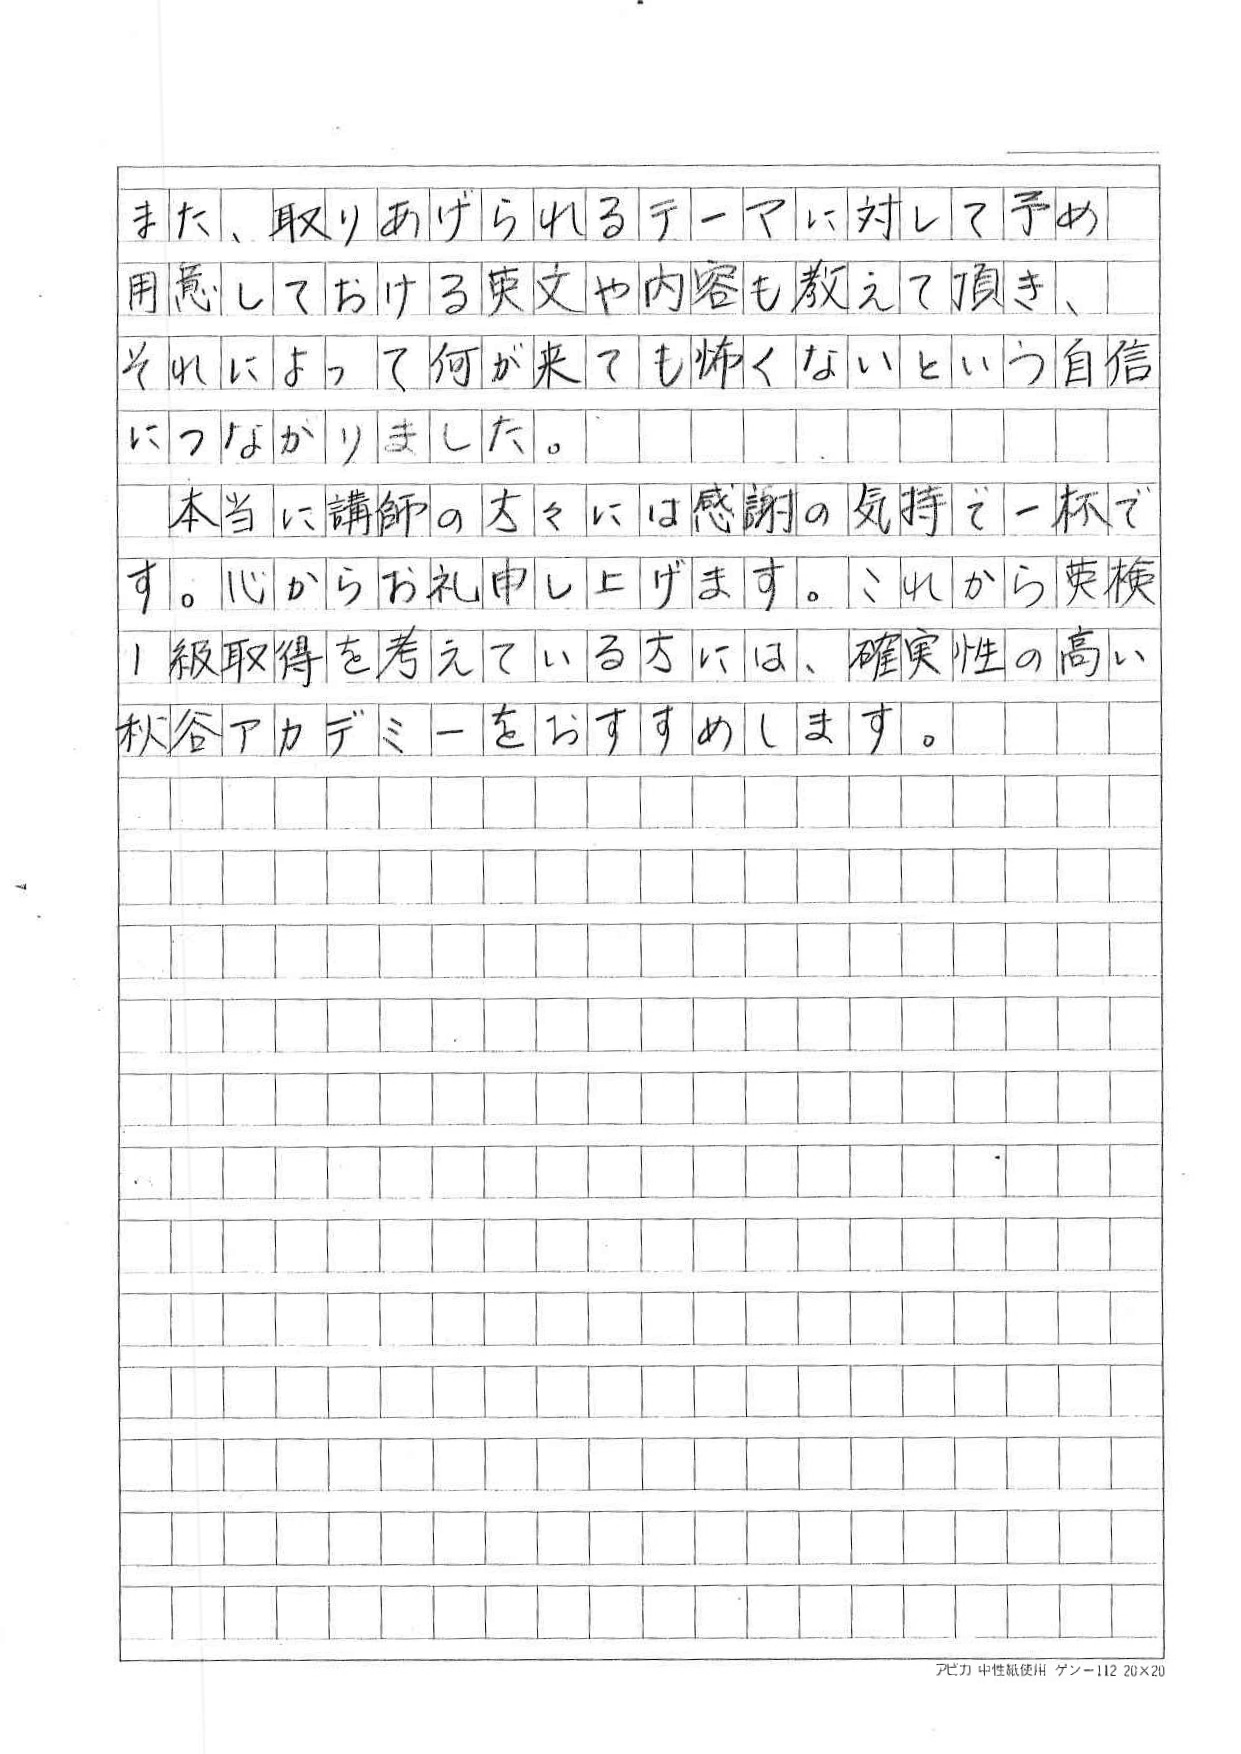 また、取りあげられるテーマに対して予め
用意しておける英文や内容も教えて頂き、
それによって何が来ても怖くないという自信
につながりました。
本当に講師の方々には感謝の気持で一杯で
す。心からお礼申し上げます。これから英検
1級取得を考えている方には、確実性の高い
秋谷アカデミーをおすすめします。
アピカ 中性紙使用 ゲンー112 20×20